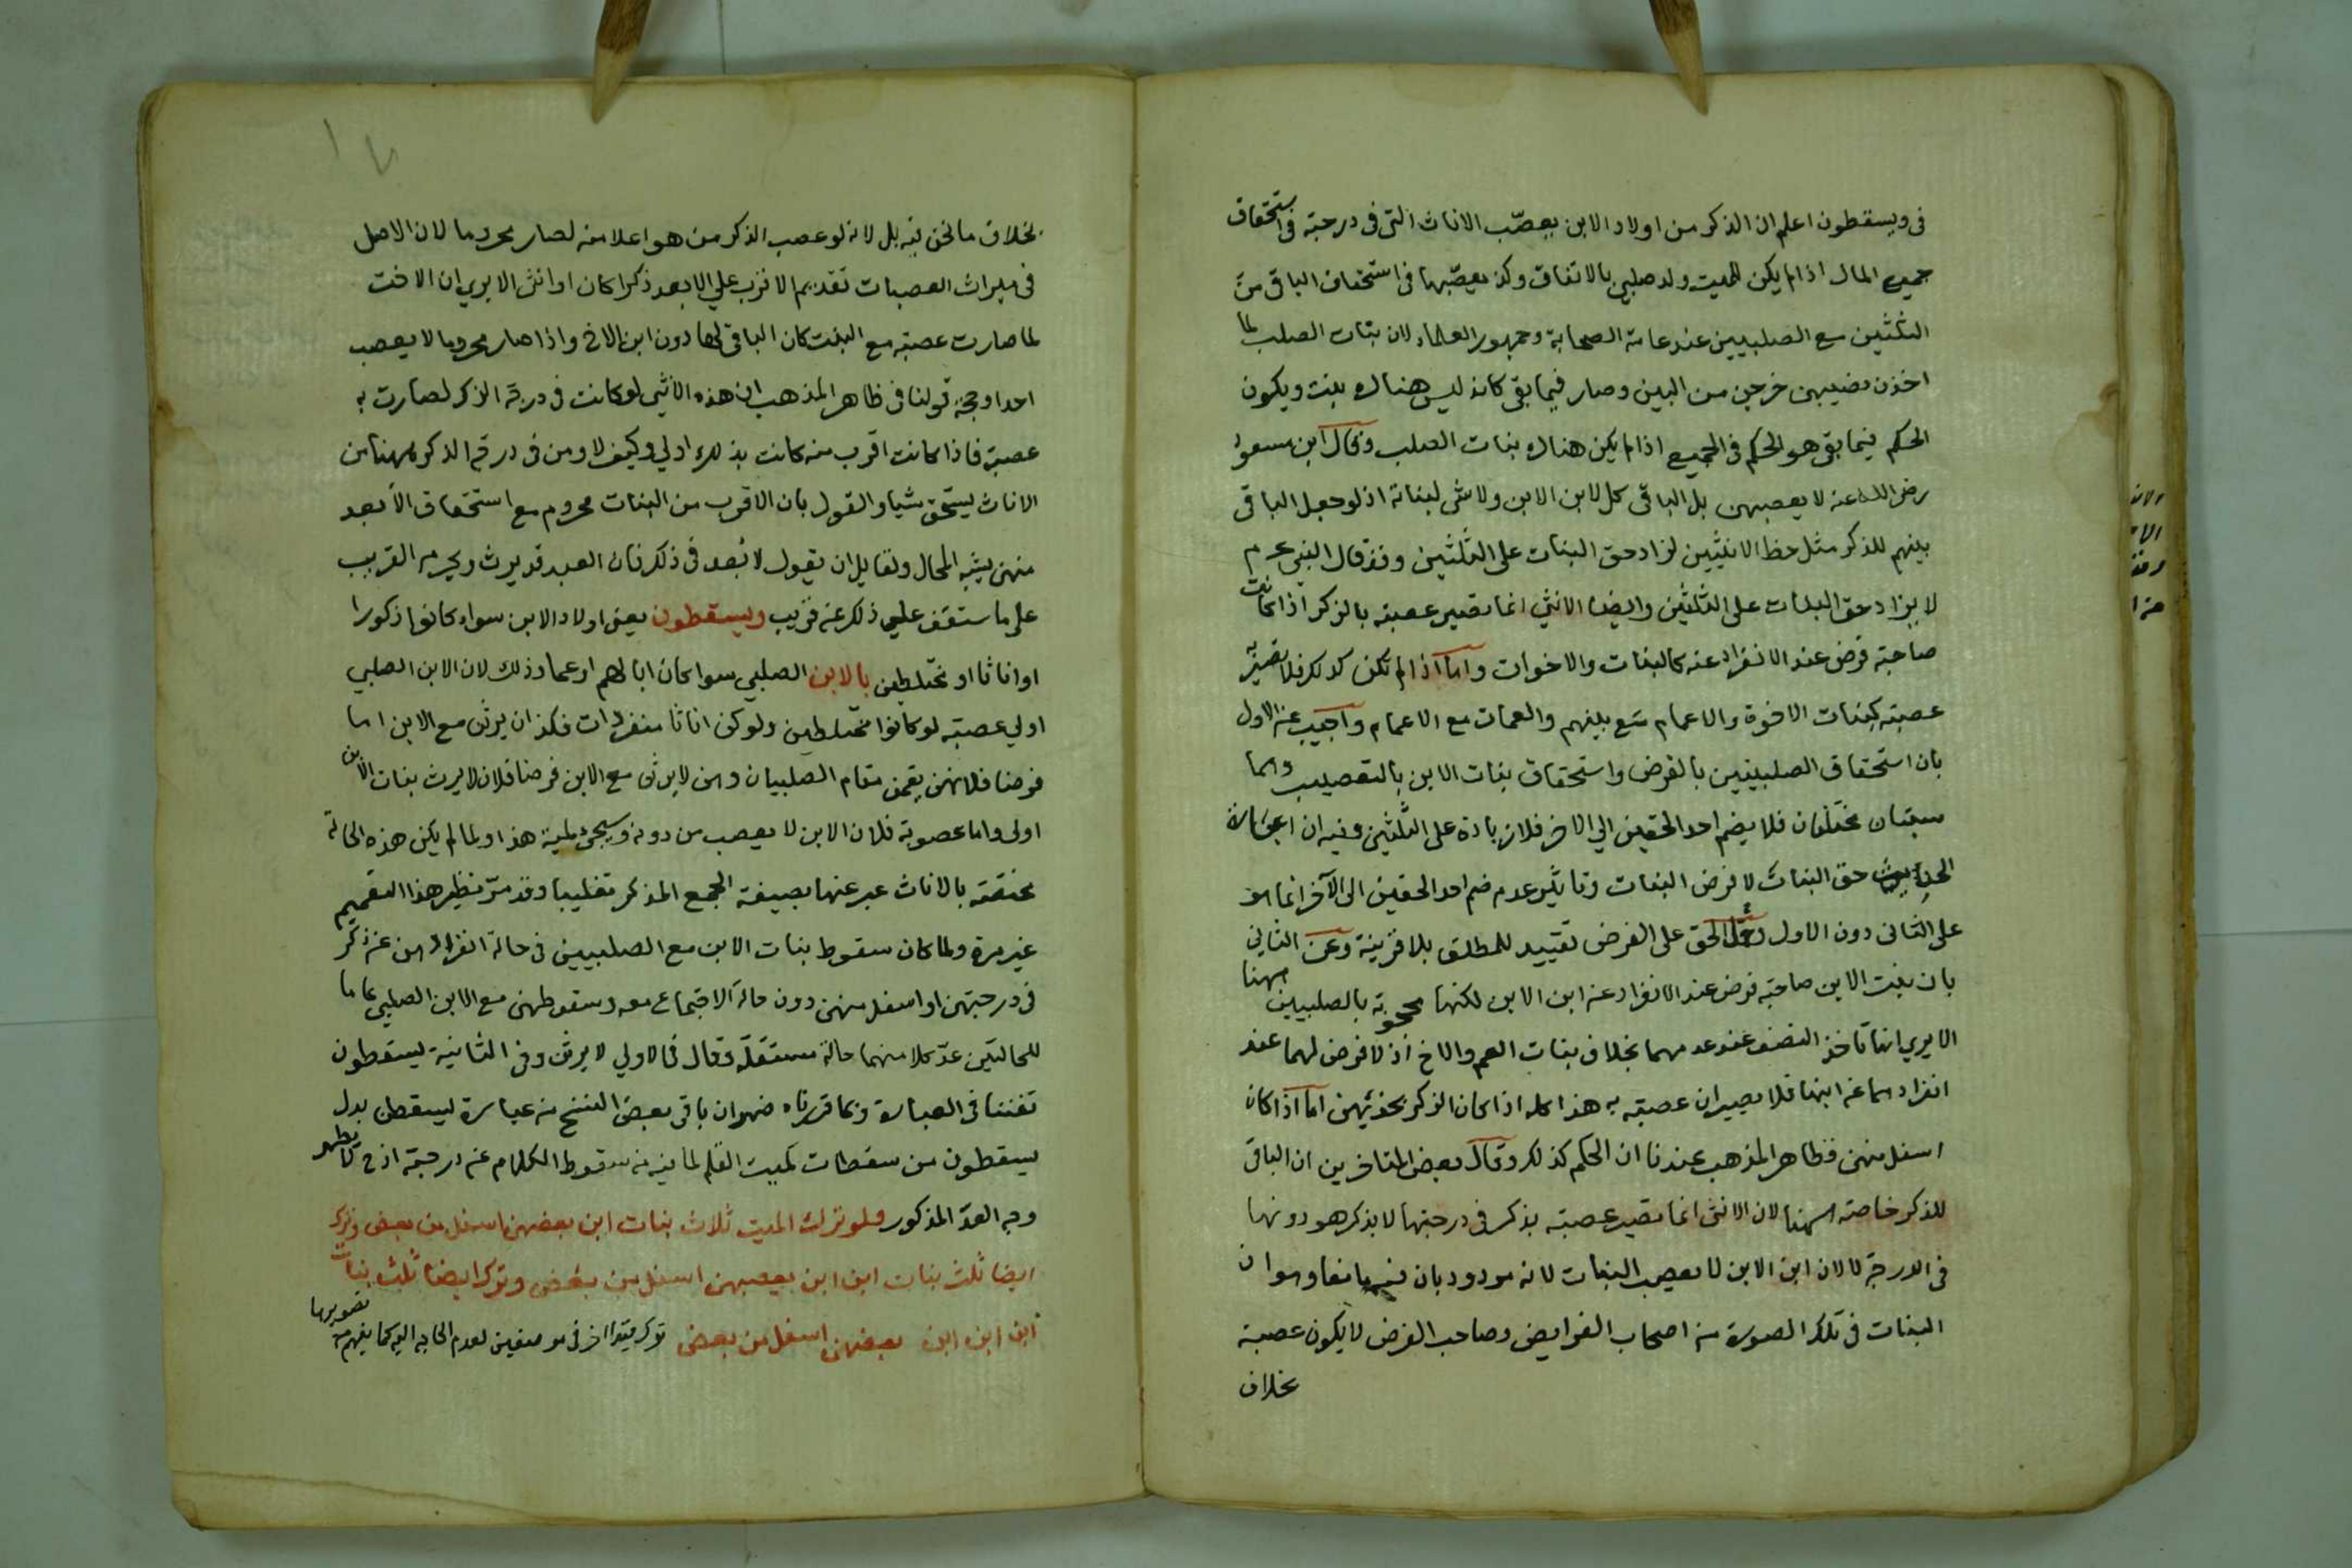 فى ويسقطون اعلم ان الذكر من اولاد الابن يعصّب الاناث التى فى درجته فى استحقاق
جميع المال اذا لم يكن للميت ولد صلبى بالاتفاق وكذا يعصّبها فى استحقاق الباقى من
الثلثين مع الصلبيين عند عامة الصحابة وجمهور العلماء لان بنات الصلب لما
اخذن نصيبهن خرجن من البين وصار فيما بقى كانه ليس هناك بنت ويكون
الحكم فيما بقى هو الحكم فى الجميع اذا لم يكن هناك بنات الصلب وقال ابن مسعود
رضى الله عنه لا يعصبهن بل الباقى كل لابن الابن ولا شى لبناته اذ لو جعل الباقى
بينهم للذكر مثل حظ الانثيين لزاد حق البنات على الثلثين وقد قال النبى عم
لا يزاد حق البنات على الثلثين وايضا الانثى انما تصير عصبة بالذكر اذا كانت
صاحبة فرض عند الانفراد عنه كالبنات والاخوات واما اذا لم تكن كذلك فلا تصير به
عصبة كبنات الاخوة والاعمام مع بينهم والعمات مع الاعمام واجيب عن الاول
بان استحقاق الصلبيتين بالفرض واستحقاق بنات الابن بالتعصيب وهما
سببان مختلفان فلا يضم احد الحقين الى الاخر فلا زيادة على الثلثين وفيه ان عبارة
الحديث حق البنات لا فرض البنات وتاثير عدم ضم احد الحقين الى الآخر انما هو
على الثانى دون الاول وحمل الحق على الفرض تقييد للمطلق بلا قرينة وعن الثانى
بان بنت الابن صاحبة فرض عند الانفراد عن ابن الابن لكنها محجوبة بالصلبيين ههنا
الا يرى انها تاخذ النصف عند عدمهما بخلاف بنات العم والاخ اذ لا فرض لهما عند
انفرادهما عن ابنها فلا تصيران عصبة به هذا كله اذا كان الذكر بحذائهن اما اذا كان
اسفل منهن فظاهر المذهب عندنا ان الحكم كذلك وقال بعض المتاخرين ان الباقى
للذكر خاصة ههنا لان الانثى انما تصير عصبة بذكر فى درجتها لا بذكر هو دونها
فى الدرجة لا لان ابن الابن لا يعصب البنات لانه مردود بان فيه مانعا وهو ان
البنات فى تلك الصورة من اصحاب الفرايض وصاحب الفرض لا يكون عصبة
بخلاف
بخلاف ما نحن فيه بل لانه لو عصب الذكر من هو اعلا منه لصار محروما لان الاصل
فى ميراث العصبات تقديم الاقرب على الابعد ذكرا كان او انثى الا يرى ان الاخت
لما صارت عصبة مع البنت كان الباقى لها دون ابن الاخ واذا صار محروما لا يعصب
احدا وحجة قولنا فى ظاهر المذهب ان هذه الانثى لو كانت فى درجة الذكر لصارت به
عصبة فاذا كانت اقرب منه كانت بذلك اولى وكيف لا ومن فى درجة الذكر ههنا من
الاناث يستحق شيا والقول بان الاقرب من البنات محروم مع استحقاق الابعد
منهن يشبه المحال ولقايل ان يقول لا بُعد فى ذلك فان العبد قد يرث ويحرم القريب
على ما ستقف على ذلك عن قريب ويسقطون يعنى اولاد الابن سواء كانوا ذكورا
او اناثا او مختلطين بالابن الصلبى سوا كان ابا لهم او عما وذلك لان الابن الصلبى
اولى عصبة لو كانوا مختلطين ولو كن اناثا منفردات فكذا ان يرثن مع الابن اما
فرضا فلانهن يقمن مقام الصلبيات وهن لا يرثن مع الابن فرضا فلان لا يرث بنات الابن
اولى واما عصوبة فلان الابن لا يعصب من دونه وسيجئ هذا ولما لم يكن هذه الحالة
مختصة بالاناث عبر عنها بصيغة الجمع المذكر تغليبا وقد مر نظير هذا التعميم
غير مرة ولما كان سقوط بنات الابن مع الصلبيين فى حالة انفرادهن عن ذكر
فى درجتهن او اسفل منهن دون حالة الاجتماع معه وسقوطهن مع الابن الصلبى عاما
للحالتين عدّ كلا منهما حالة مستقلة وقال فى الاولى لا يرثن وفى الثانية يسقطون
تفننا فى العبارة وبما قررناه ان باقى بعض النسخ من عبارة يسقطن بدل
يسقطون من سقطات كميت القلم لما فيه من سقوط الكلام عن درجته اذ ح لا يظهر
وجه العدّ المذكور ولو ترك الميت ثلاث بنات ابن بعضهن اسفل من بعض وترك
ايضا ثلث بنات ابن ابن بعضهن اسفل من بعض وترك ايضا ثلث بنات
ابن ابن ابن بعضهن اسفل من بعض ترك قيدا اخر فى موضعين لعدم الحاجه اليه كما يفهم من تصويرها